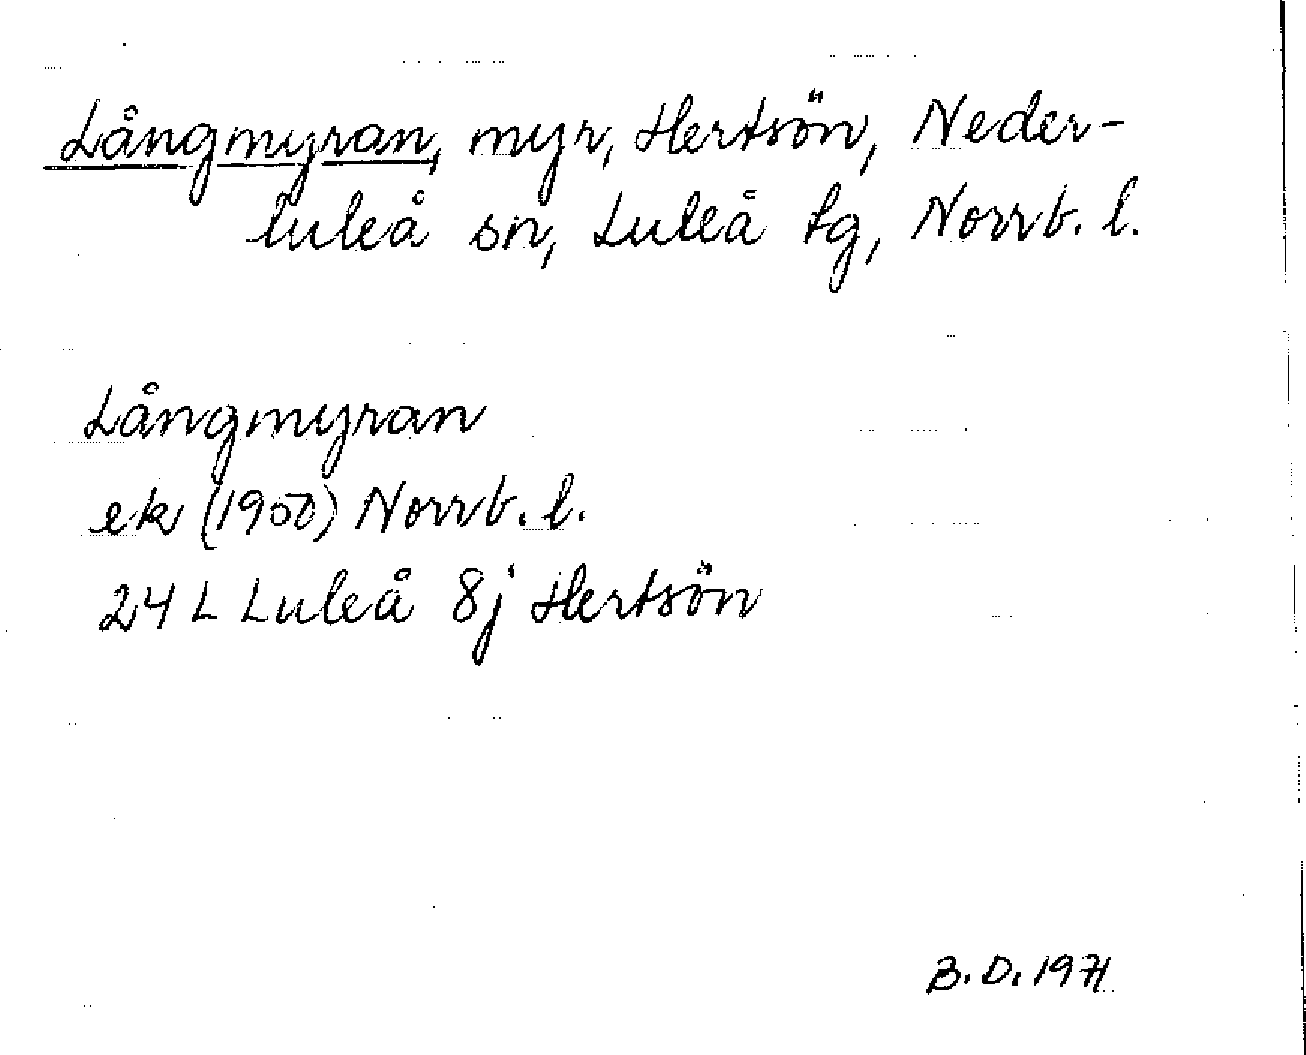 Långmyran, myr, Hertsön, Neder-
luleå sn, Luleå tg, Norrb. l.
Långmyran
ek (1950) Norrb. l.
24 L Luleå 8j Hertsön
B. D. 1971